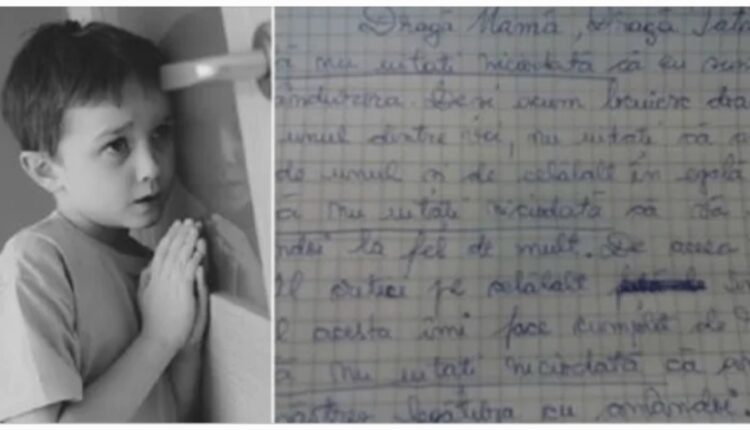 Dragă Mamă, Dragă Tată
ă nu uitați niciodată că eu sun
ândurora. Deși acum locuiesc doa
unul dintre voi, nu uitați că a
de unul și de celălalt în egală
ă nu uitați niciodată că vă
ndoi la fel de mult. De aceea
îl critici pe celălalt
l acesta îmi face cumplit de
ă nu uitați niciodată că am
păstrez legătura cu amândoi.